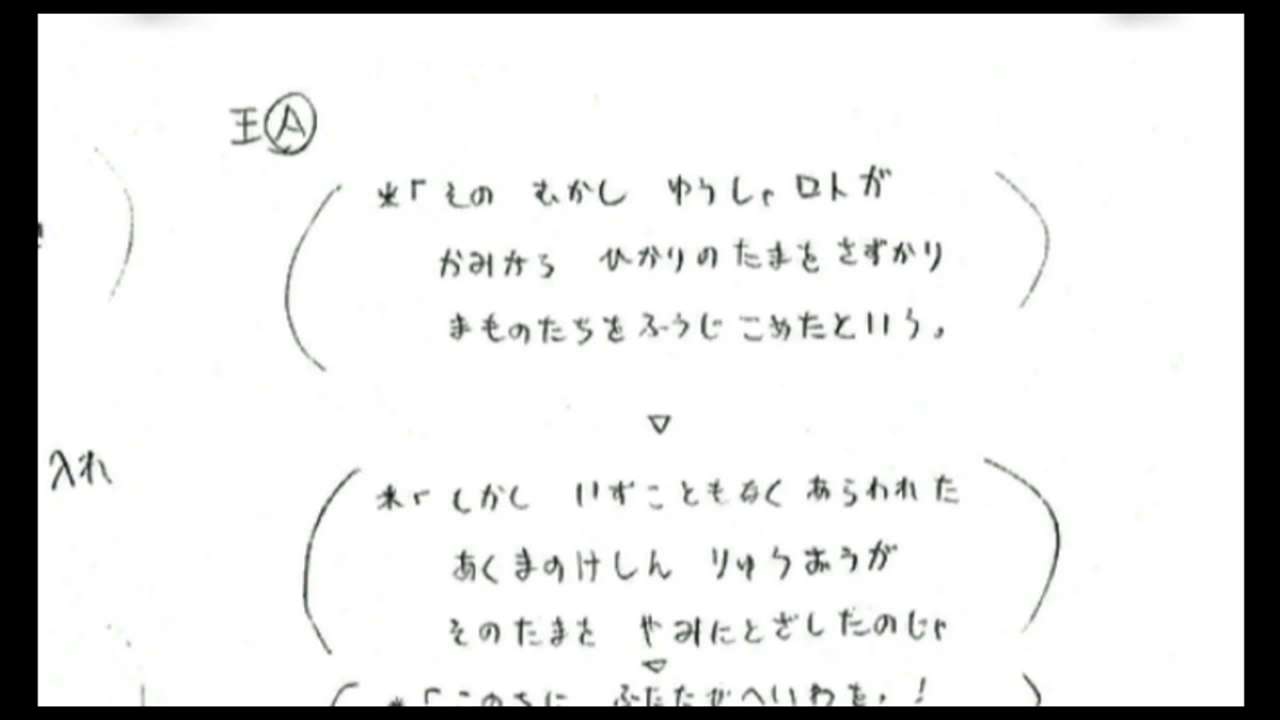 王Ⓐ
*「その むかし ゆうしゃ ロトが
かみから ひかりのたまを さずかり
まものたちを ふうじ こめたという。
▽
*「しかし いずこともなく あらわれた
あくまのけしん りゅうおうが
そのたまを やみにとざしたのじゃ
▽
*「このちに ふたたびへいわを・!
入れ